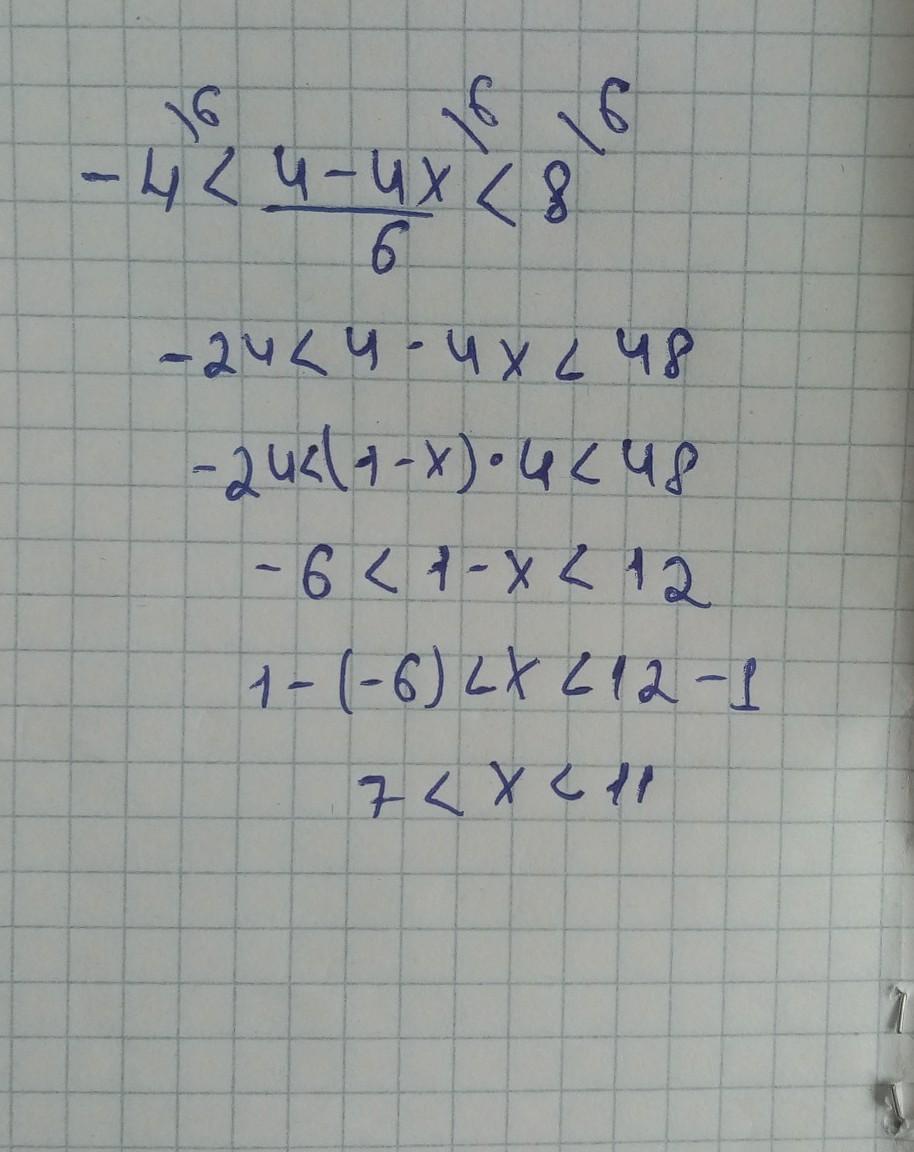 \6 \6 \6
-4 < (4-4x)/6 < 8
-24 < 4 - 4x < 48
-24 < (1-x)·4 < 48
-6 < 1-x < 12
1-(-6) < x < 12-1
7 < x < 11